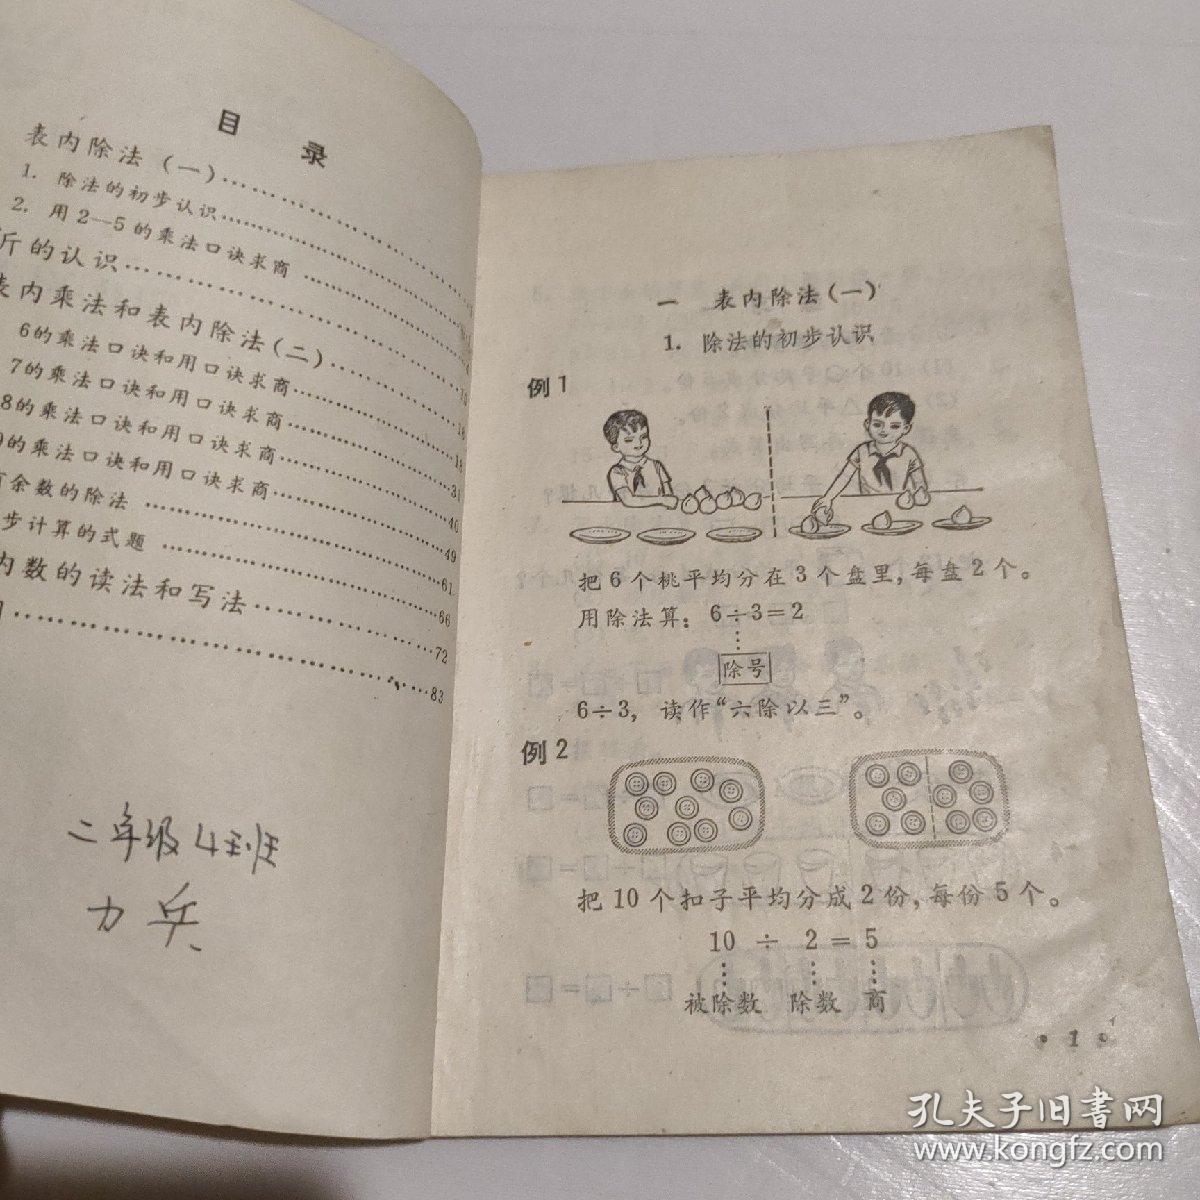 目 录
表内除法(一)
1. 除法的初步认识
2. 用2—5的乘法口诀求商
斤的认识
表内乘法和表内除法(二)
6的乘法口诀和用口诀求商
7的乘法口诀和用口诀求商
8的乘法口诀和用口诀求商 18
9的乘法口诀和用口诀求商 31
有余数的除法 40
步计算的式题 49
内数的读法和写法 61
66
72
83
二年级4班
力兵
一 表内除法(一)
1. 除法的初步认识
例1
把6个桃平均分在3个盘里,每盘2个。
用除法算: 6÷3=2
除号
6÷3, 读作“六除以三”。
例2
把10个扣子平均分成2份,每份5个。
10 ÷ 2 = 5
被除数 除数 商
• 1 •
孔夫子旧书网
www.kongfz.com